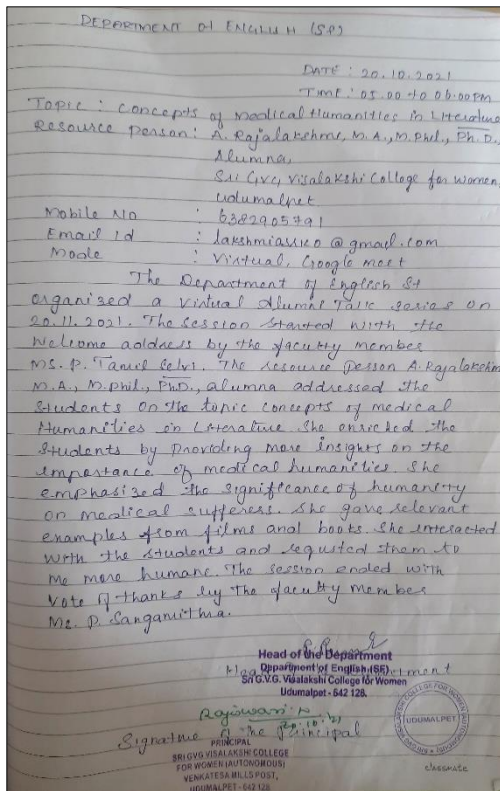 DEPARTMENT OF ENGLISH (SF)
DATE : 20.10.2021
TIME : 05.00 to 06.00PM
Topic : Concepts of Medical Humanities in Literature
Resource person : A. Rajalakshmi, M.A., M.Phil., Ph.D.,
Alumna,
Sri GVG Visalakshi College for Women,
Udumalpet
Mobile No : 6382905791
Email Id : @gmail.com
Mode : Virtual, Google meet
The Department of English SF
organized a Virtual Alumni Talk series on
20.11.2021. The session started with the
Welcome address by the faculty member
MS. P. Tamil Selvi. The resource person A. Rajalakshmi
M.A., M.phil., Ph.D., alumna addressed the
students on the topic concepts of medical
Humanities in Literature. She enriched the
students by providing more insights on the
importance of medical humanities. She
emphasized the significance of humanity
on medical sufferers. She gave relevant
examples from films and books. She interacted
with the students and requited them to
me more humane. The session ended with
Vote of thanks by the faculty member
Ms. P. Sangamithra.
Head of the Department
Department of English (SF)
Sri G.V.G. Visalakshi College for Women
Udumalpet - 642 128.
Rajeswari. P
20.10.21
Signature of the Principal
PRINCIPAL
SRI GVG VISALAKSHI COLLEGE
FOR WOMEN (AUTONOMOUS)
VENKATESA MILLS POST,
UDUMALPET - 642 128
UDUMALPET
classmate